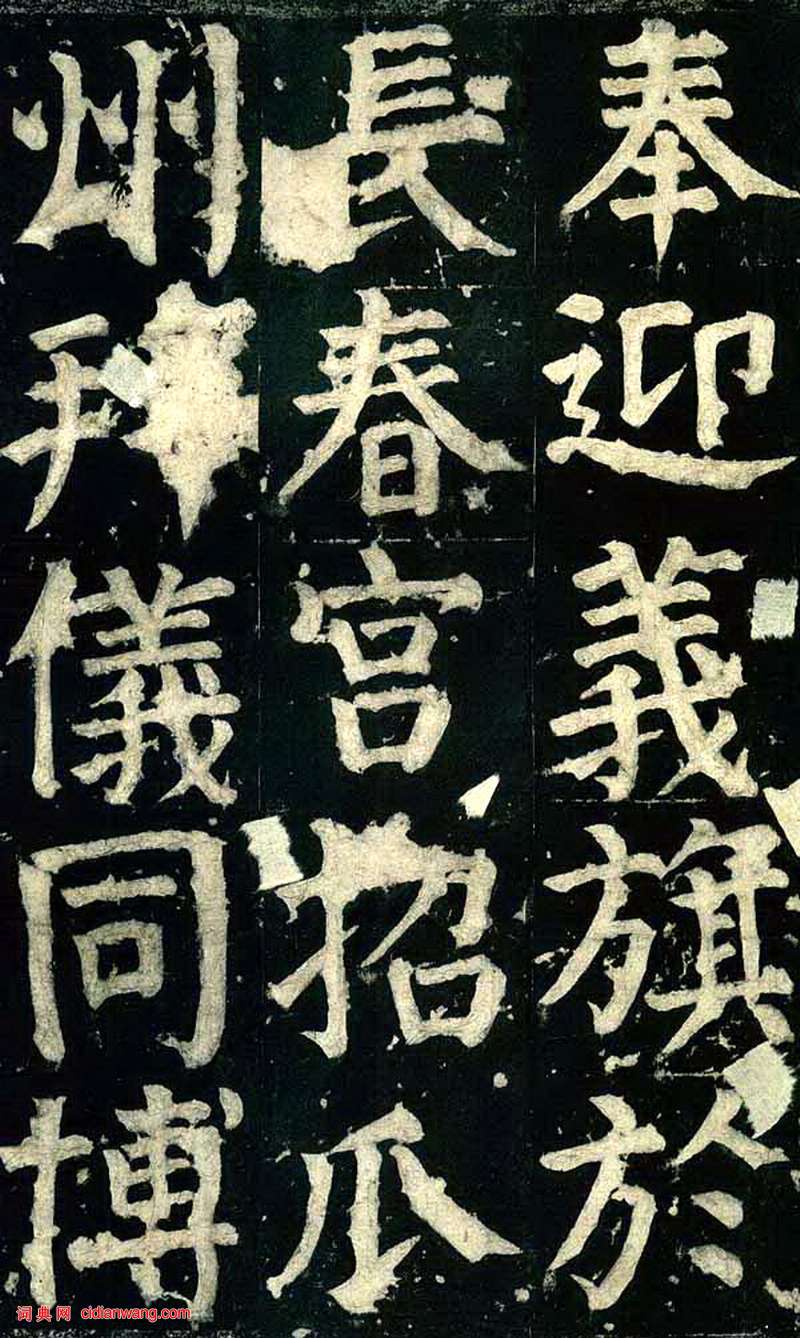 奉迎義旗於
長春宮招瓜
州拜儀同博
词典网 cidianwang.com